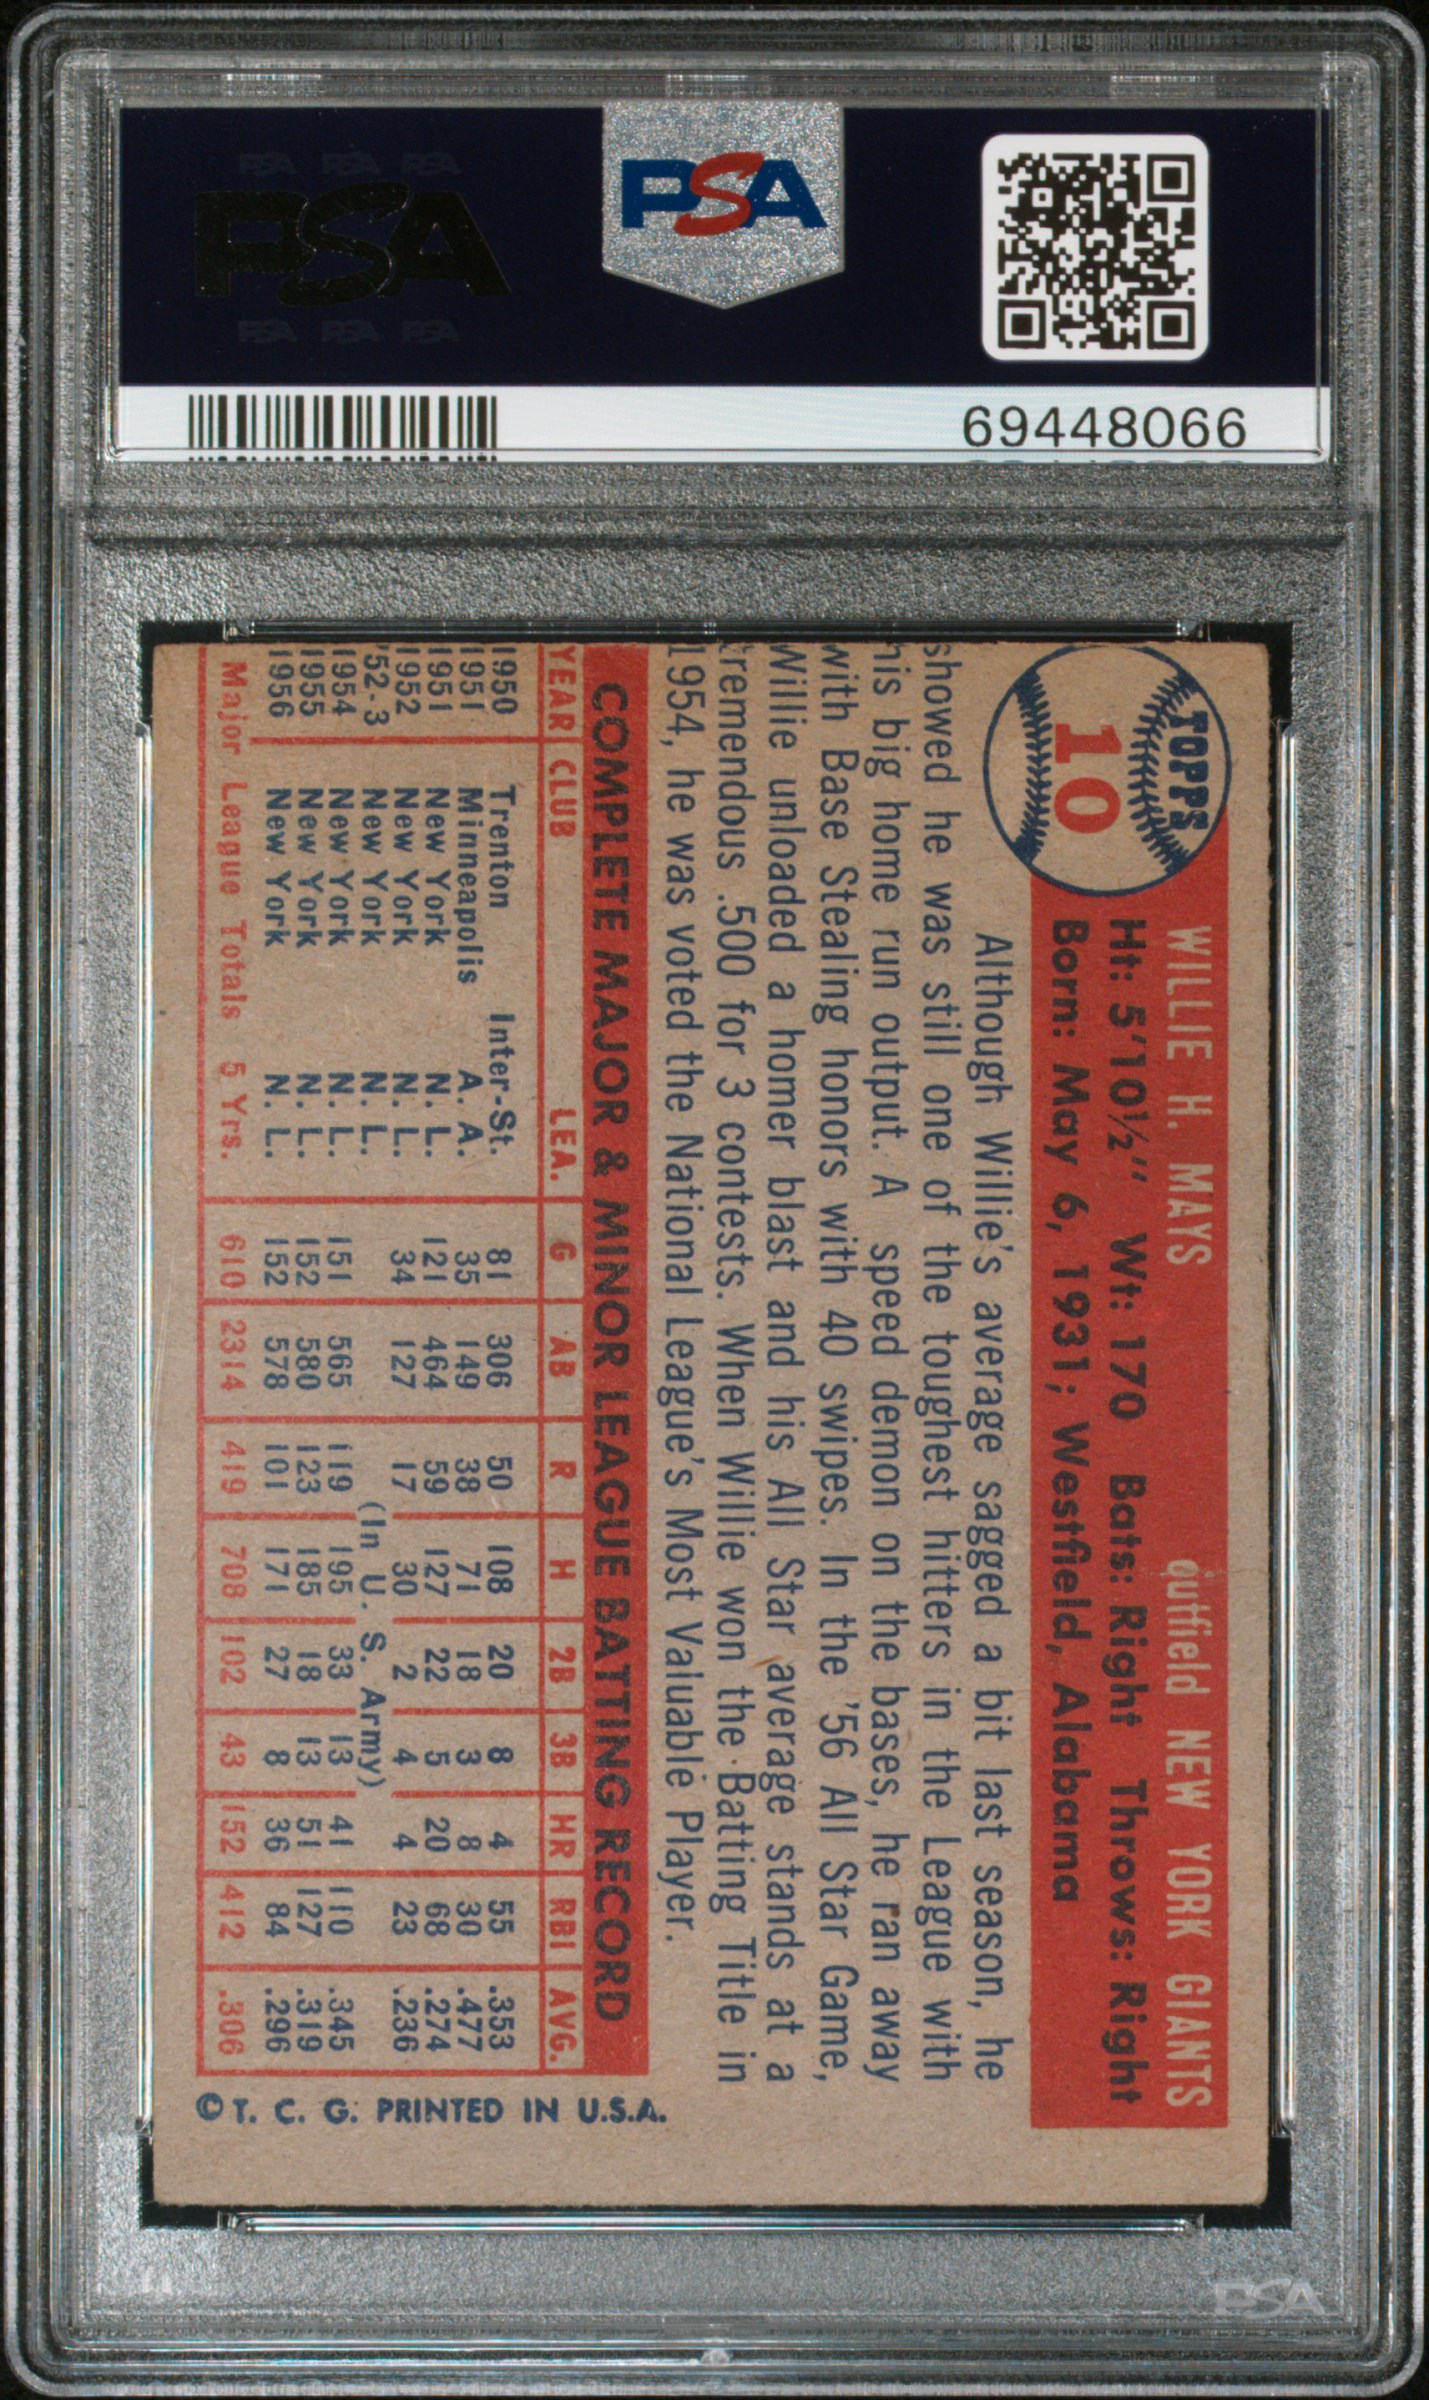 PSA PSA PSA
PSA
PSA PSA PSA
PSA
69448066
TOPPS
10
WILLIE H. MAYS outfield NEW YORK GIANTS
Ht: 5'10½" Wt: 170 Bats: Right Throws: Right
Born: May 6, 1931; Westfield, Alabama
Although Willie's average sagged a bit last season, he
showed he was still one of the toughest hitters in the League with
his big home run output. A speed demon on the bases, he ran away
with Base Stealing honors with 40 swipes. In the '56 All Star Game,
Willie unloaded a homer blast and his All Star average stands at a
tremendous .500 for 3 contests. When Willie won the Batting Title in
1954, he was voted the National League's Most Valuable Player.
COMPLETE MAJOR & MINOR LEAGUE BATTING RECORD
YEAR CLUB LEA. G AB R H 2B 3B HR RBI AVG.
1950 Trenton Inter-St. 81 306 50 108 20 8 4 55 .353
1951 Minneapolis A. A. 35 149 38 71 18 3 8 30 .477
1951 New York N. L. 121 464 59 127 22 5 20 68 .274
1952 New York N. L. 34 127 17 30 2 4 4 23 .236
'52-3 New York N. L. (In U. S. Army)
1954 New York N. L. 151 565 119 195 33 13 41 110 .345
1955 New York N. L. 152 580 123 185 18 13 51 127 .319
1956 New York N. L. 152 578 101 171 27 8 36 84 .296
Major League Totals 5 Yrs. 610 2314 419 708 102 43 152 412 .306
© T. C. G. PRINTED IN U.S.A.
PSA